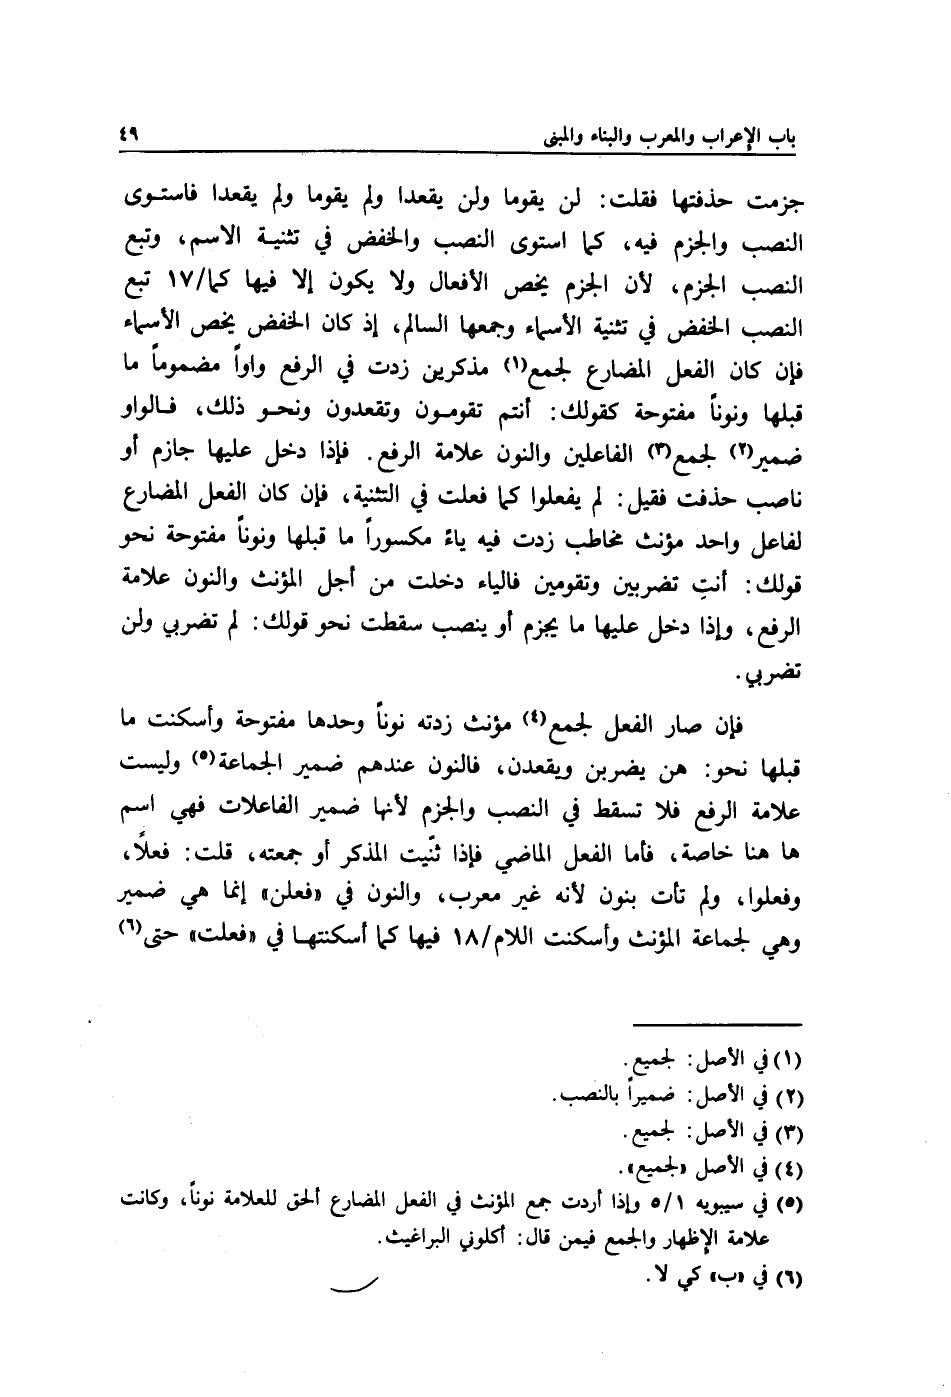 باب الإعراب والمعرب والبناء والمبنى ٤٩
جزمت حذفتها فقلت: لن يقوما ولن يقعدا ولم يقوما ولم يقعدا فاستوى
النصب والجزم فيه، كما استوى النصب والخفض في تثنية الاسم، وتبع
النصب الجزم، لأن الجزم يخص الأفعال ولا يكون إلا فيها كما/١٧ تبع
النصب الخفض في تثنية الأسماء وجمعها السالم، إذ كان الخفض يخص الأسماء
فإن كان الفعل المضارع لجمع(١) مذكرين زدت في الرفع واواً مضموماً ما
قبلها ونوناً مفتوحة كقولك: أنتم تقومون وتقعدون ونحو ذلك، فالواو
ضمير(٢) لجمع(٣) الفاعلين والنون علامة الرفع. فإذا دخل عليها جازم أو
ناصب حذفت فقيل: لم يفعلوا كما فعلت في التثنية، فإن كان الفعل المضارع
لفاعل واحد مؤنث مخاطب زدت فيه ياءً مكسوراً ما قبلها ونوناً مفتوحة نحو
قولك: أنتِ تضربين وتقومين فالياء دخلت من أجل المؤنث والنون علامة
الرفع، وإذا دخل عليها ما يجزم أو ينصب سقطت نحو قولك: لم تضربي ولن
تضربي.
فإن صار الفعل لجمع(٤) مؤنث زدته نوناً وحدها مفتوحة وأسكنت ما
قبلها نحو: هن يضربن ويقعدن، فالنون عندهم ضمير الجماعة(٥) وليست
علامة الرفع فلا تسقط في النصب والجزم لأنها ضمير الفاعلات فهي اسم
ها هنا خاصة، فأما الفعل الماضي فإذا ثنّيت المذكر أو جمعته، قلت: فعلاَ،
وفعلوا، ولم تأت بنون لأنه غير معرب، والنون في «فعلن» إنما هي ضمير
وهي لجماعة المؤنث وأسكنت اللام/١٨ فيها كما أسكنتها في «فعلت» حتى(٦)
(١) في الأصل: لجميع.
(٢) في الأصل: ضميراً بالنصب.
(٣) في الأصل: لجميع.
(٤) في الأصل «لجميع».
(٥) في سيبويه ٥/١ وإذا أردت جمع المؤنث في الفعل المضارع ألحق للعلامة نوناً، وكانت
علامة الإظهار والجمع فيمن قال: أكلوني البراغيث.
(٦) في «ب» كي لا.